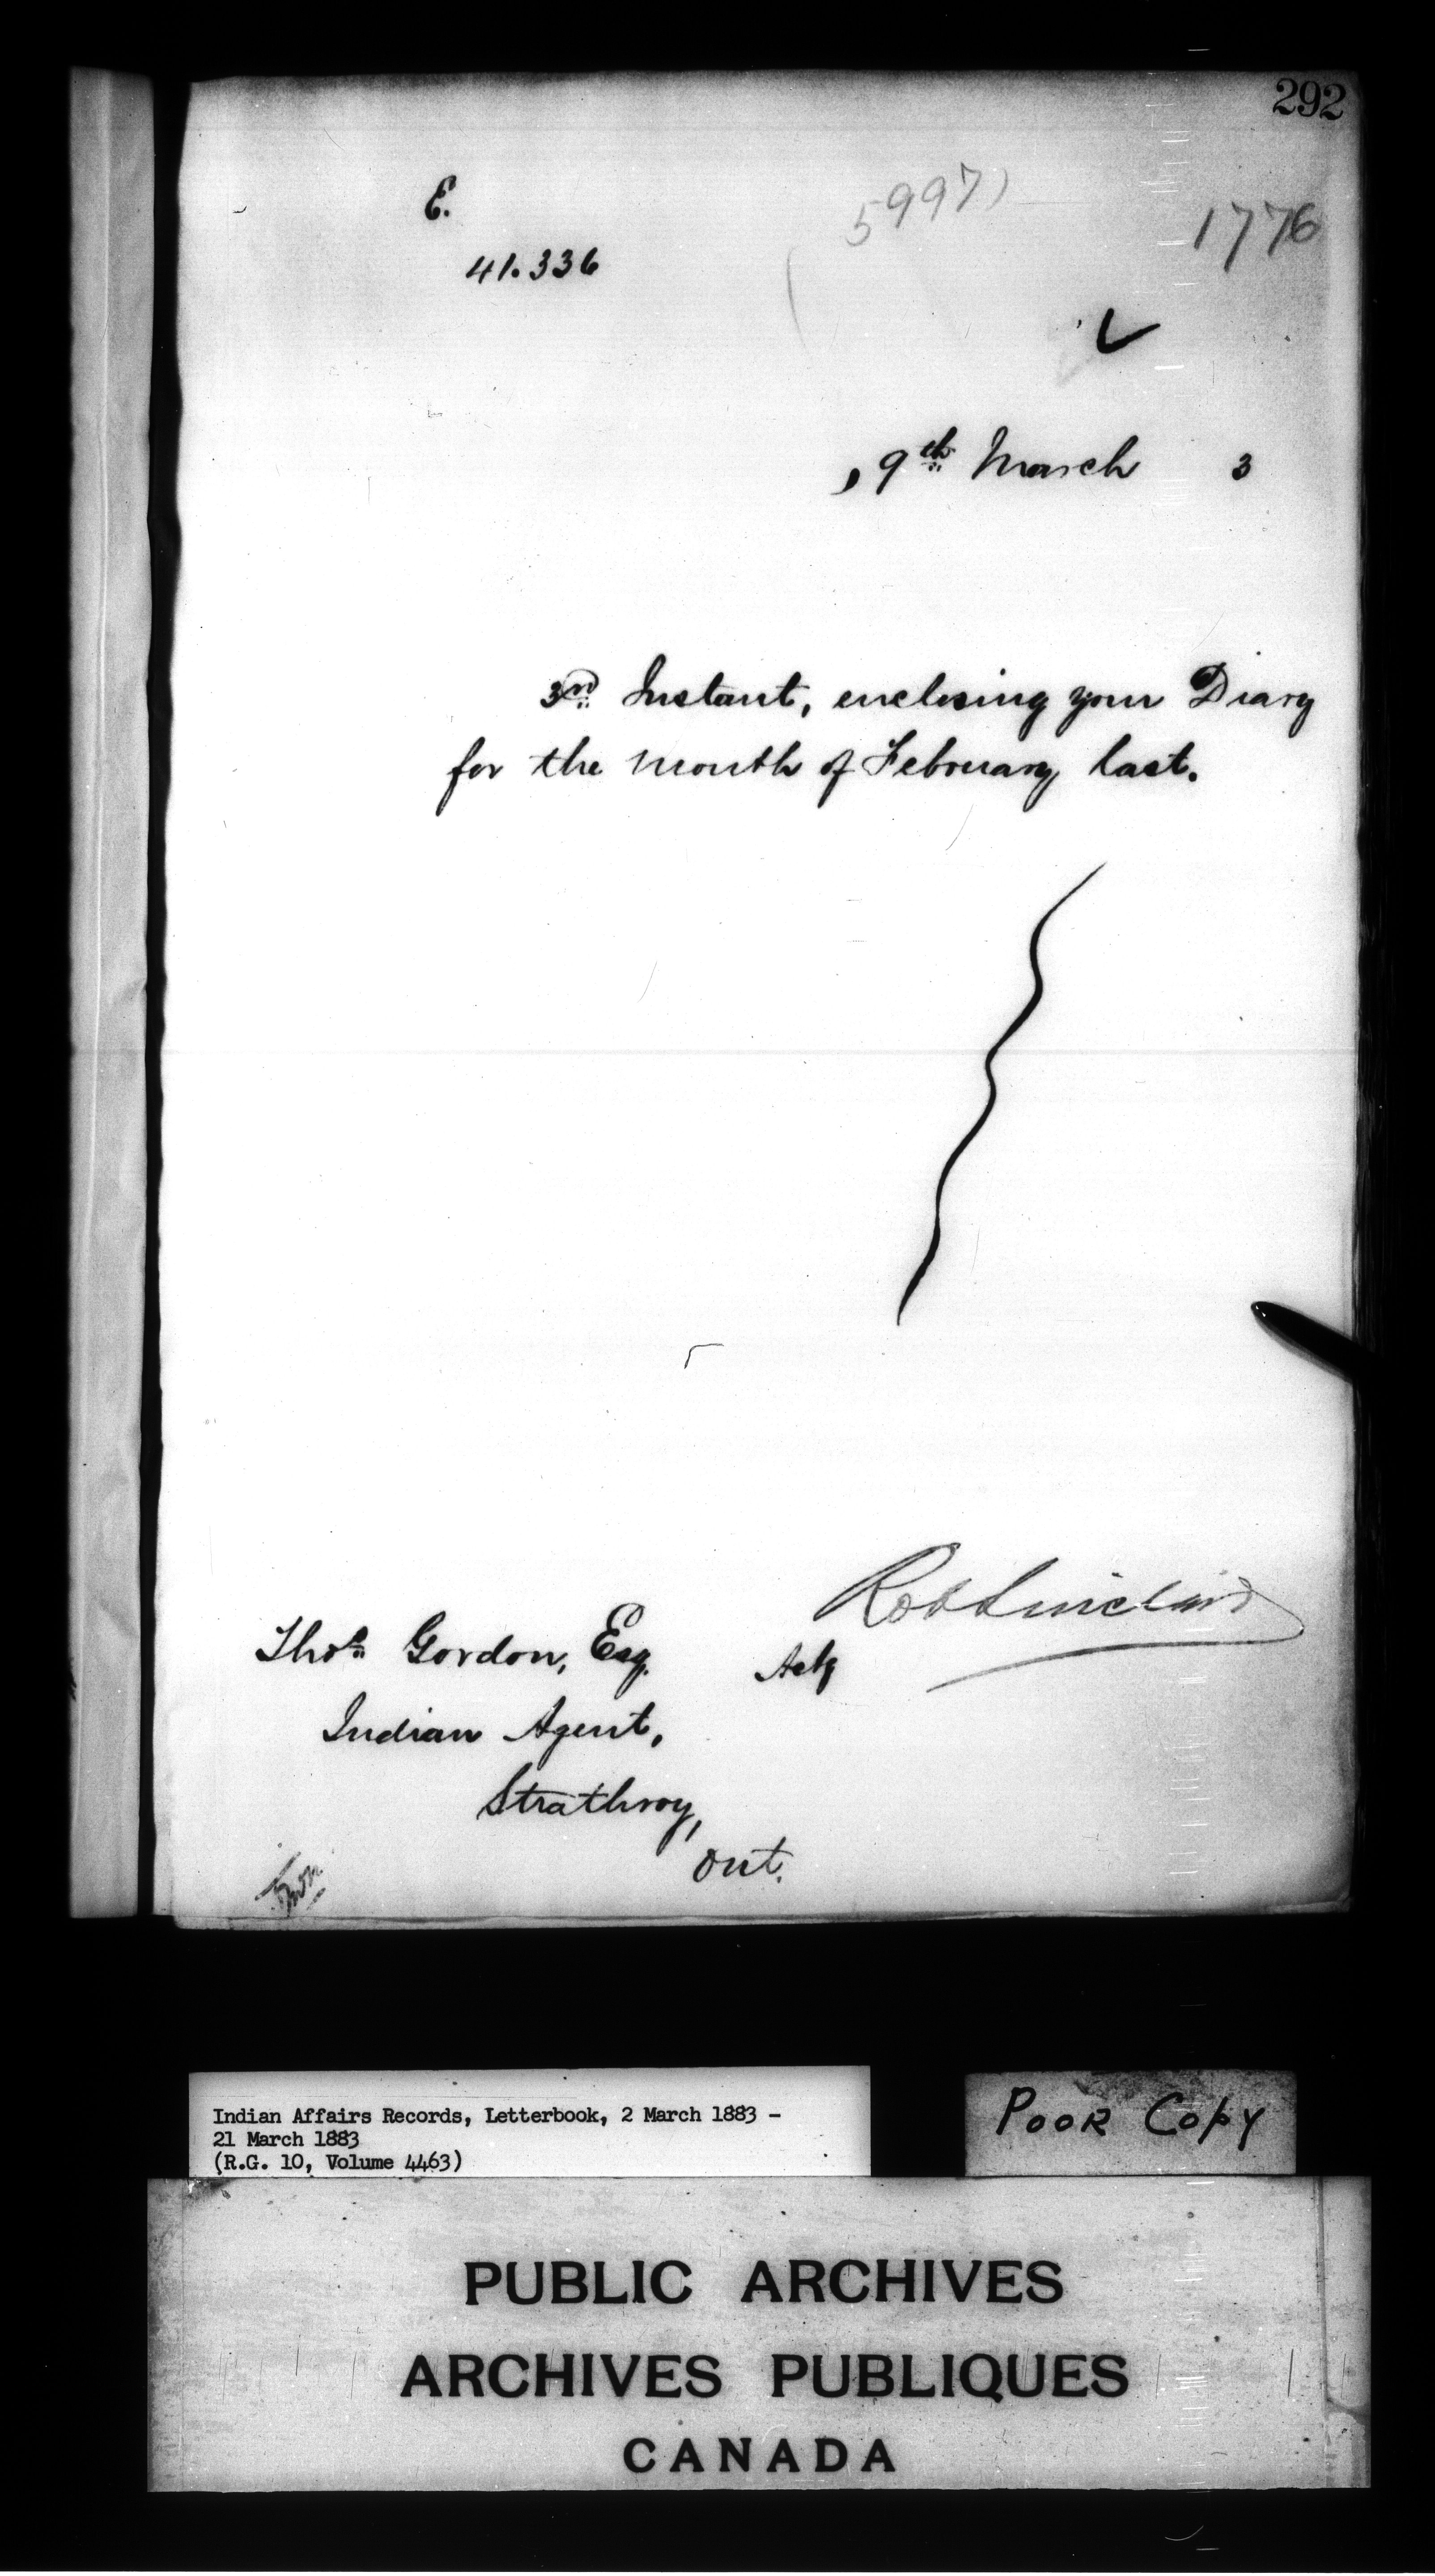 292
E.
5997)
1776
41.336
, 9th March 3
3rd Instant, enclosing your Diary
for the month of February last.
Robt Sinclair
Thos Gordon, Esq.
Indian Agent,
Strathroy,
Ont.
Indian Affairs Records, Letterbook, 2 March 1883 -
21 March 1883
(R.G. 10, Volume 4463)
POOR COPY
PUBLIC ARCHIVES
ARCHIVES PUBLIQUES
CANADA